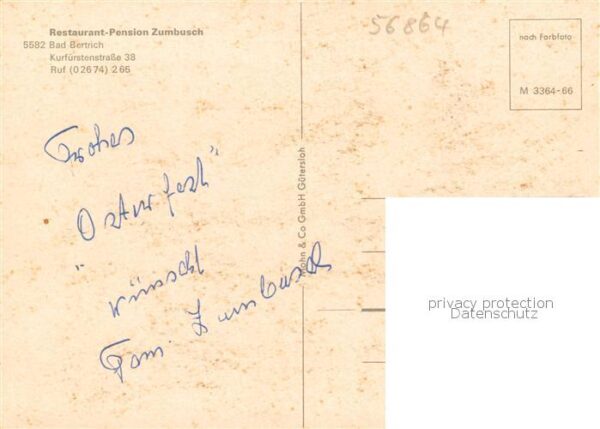 Restaurant-Pension Zumbusch
5582 Bad Bertrich
Kurfürstenstraße 38
Ruf (02674) 265
56864
nach Farbfoto
M 3364-66
Frohes
"Osterfest"
wünscht
Fam. Zumbusch
Mohn & Co GmbH Gütersloh
privacy protection
Datenschutz